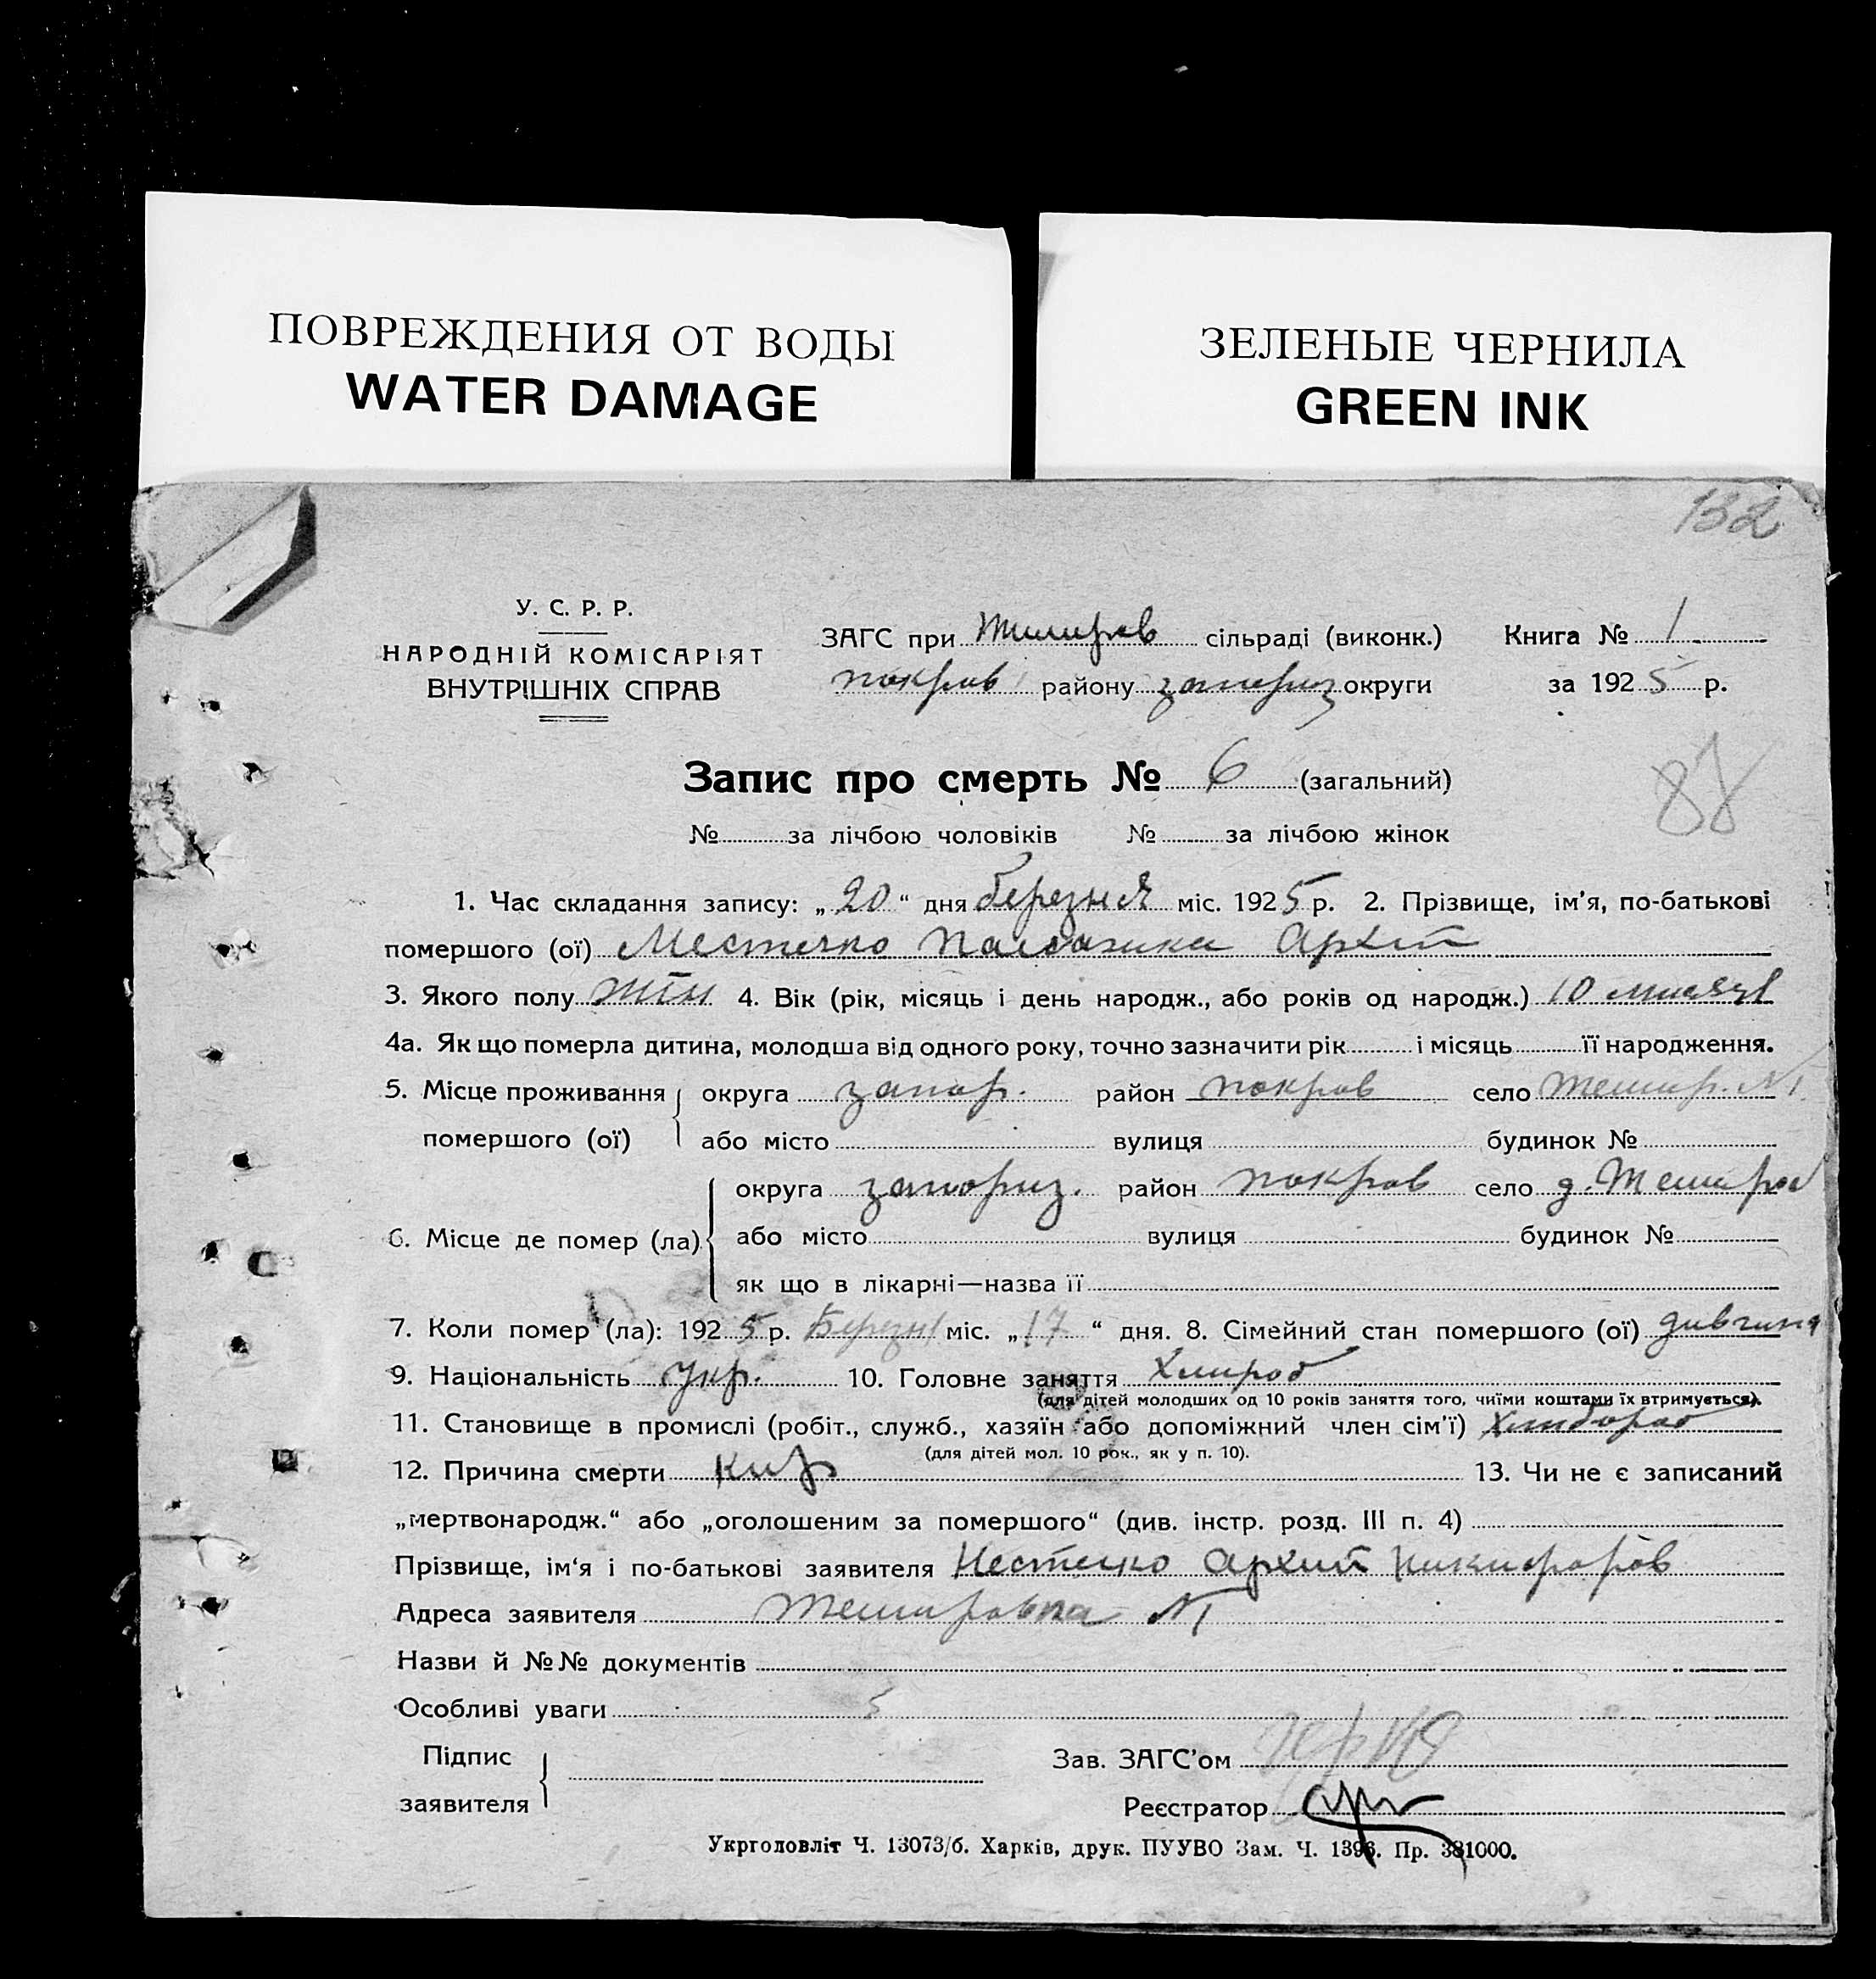 ПОВРЕЖДЕНИЯ ОТ ВОДЫ
WATER DAMAGE
ЗЕЛЕНЫЕ ЧЕРНИЛА
GREEN INK
132
У. С. Р. Р.
НАРОДНІЙ КОМІСАРІЯТ
ВНУТРІШНІХ СПРАВ
ЗАГС при сільраді (виконк.) Книга № 1
покров району запориз округи за 1925 р.
Запис про смерть № 6 (загальний)
88
№ за лічбою чоловіків № за лічбою жінок
1. Час складання запису: „20“ дня березня міс. 1925 р. 2. Прізвище, ім'я, по-батькові
помершого (ої) Архип
3. Якого полу жін 4. Вік (рік, місяць і день народж., або років од народж.) 10
4а. Як що померла дитина, молодша від одного року, точно зазначити рік і місяць її народження.
5. Місце проживання округа запор. район покров село №1
помершого (ої) або місто вулиця будинок №
округа запориз. район покров село д.
6. Місце де помер (ла) або місто вулиця будинок №
як що в лікарні—назва її
7. Коли помер (ла): 1925 р. Березн міс. „17“ дня. 8. Сімейний стан помершого (ої) дивчина
9. Національність Укр. 10. Головне заняття
(для дітей молодших од 10 років заняття того, чиїми коштами їх втримується).
11. Становище в промислі (робіт., служб., хазяїн або допоміжний член сім'ї)
(для дітей мол. 10 рок., як у п. 10).
12. Причина смерти кир 13. Чи не є записаний
„мертвонародж.“ або „оголошеним за помершого“ (див. інстр. розд. III п. 4)
Прізвище, ім'я і по-батькові заявителя Архип Никифоров
Адреса заявителя №1
Назви й №№ документів
Особливі уваги
Підпис
заявителя
Зав. ЗАГС'ом
Реєстратор
Укрголовліт Ч. 13073/б. Харків, друк. ПУУВО Зам. Ч. 1396. Пр. 381000.